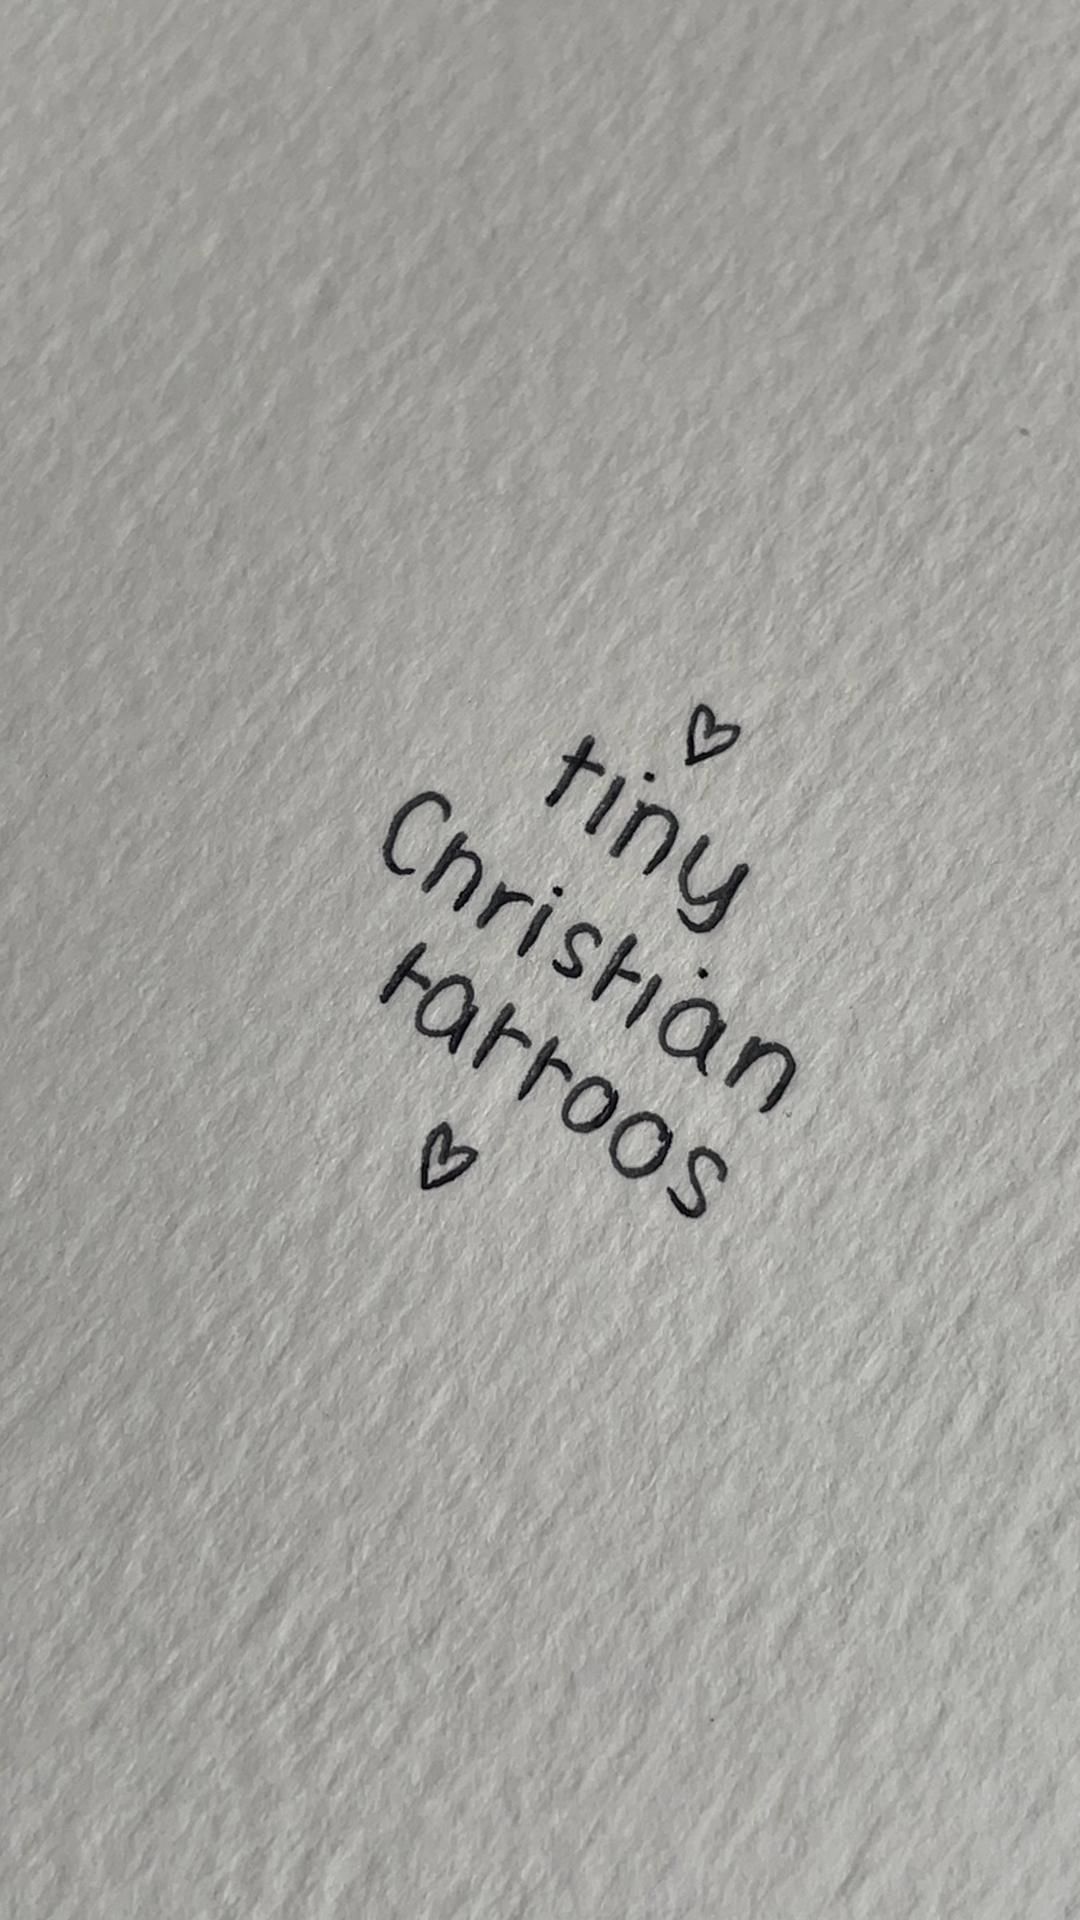 tiny
Christian
tattoos